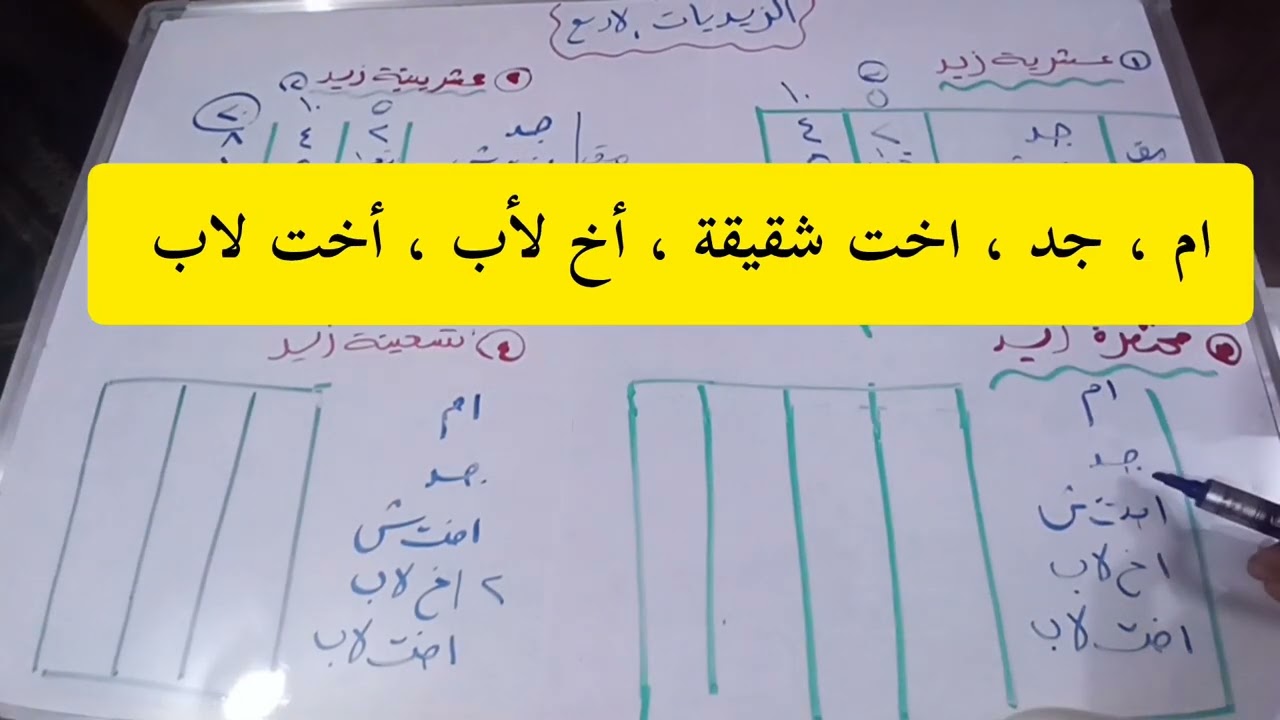 الزيديات الاربع
① عشرية زيد
١٠ ٥
جد ٢ ٤
② عشرينية زيد
٥ ١٠ ٢٠
جد ٢ ٤ ٨
ام ، جد ، اخت شقيقة ، أخ لأب ، أخت لاب
③ مختصرة زيد
ام
جد
اخت ش
اخ لاب
اخت لاب
④ تسعينية زيد
ام
جد
اخت ش
٢ اخ لاب
اخت لاب